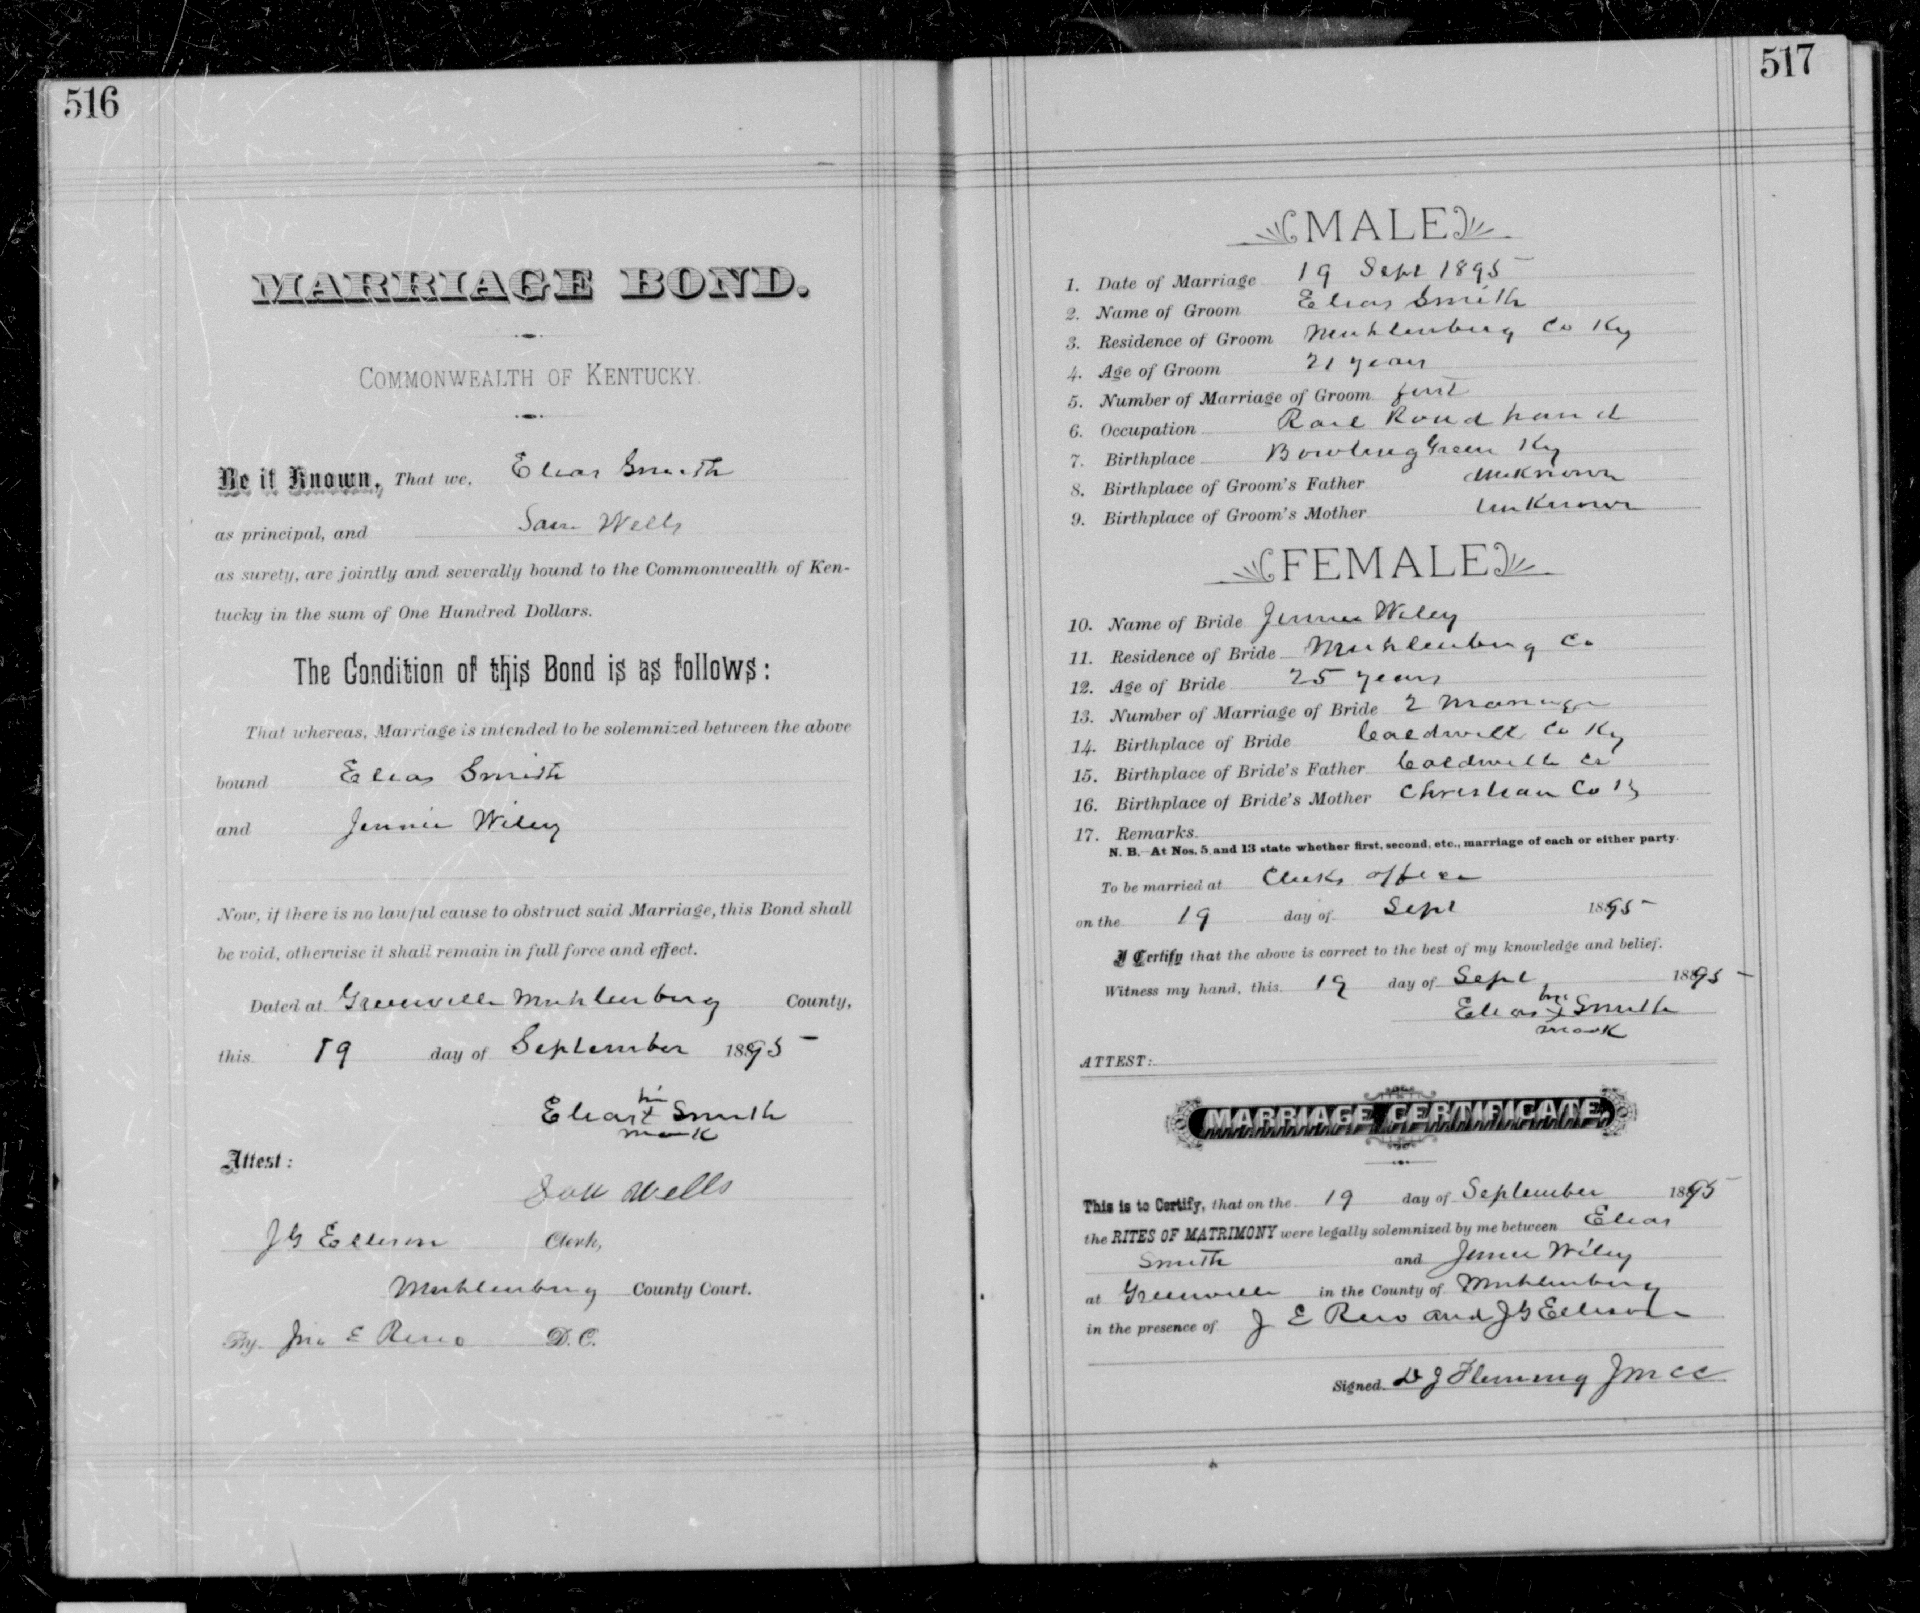 516
MARRIAGE BOND.
COMMONWEALTH OF KENTUCKY.
Be it Known, That we, Elias Smith
as principal, and Sam Wells
as surety, are jointly and severally bound to the Commonwealth of Ken-
tucky in the sum of One Hundred Dollars.
The Condition of this Bond is as follows:
That whereas, Marriage is intended to be solemnized between the above
bound Elias Smith
and Jennie Wiley
Now, if there is no lawful cause to obstruct said Marriage, this Bond shall
be void, otherwise it shall remain in full force and effect.
Dated at Greenville Muhlenberg County,
this 19 day of September 1895
his
Elias x Smith
mark
Attest:
Sam Wells
J G Ellison Clerk,
Muhlenberg County Court.
By Jno E Reno D. C.
517
MALE
1. Date of Marriage 19 Sept 1895
2. Name of Groom Elias Smith
3. Residence of Groom Muhlenberg Co Ky
4. Age of Groom 21 years
5. Number of Marriage of Groom first
6. Occupation Rail Road hand
7. Birthplace Bowling Green Ky
8. Birthplace of Groom's Father unknown
9. Birthplace of Groom's Mother unknown
FEMALE
10. Name of Bride Jennie Wiley
11. Residence of Bride Muhlenberg Co
12. Age of Bride 25 years
13. Number of Marriage of Bride 2 Marriage
14. Birthplace of Bride Caldwell Co Ky
15. Birthplace of Bride's Father Caldwell Co
16. Birthplace of Bride's Mother Christian Co Ky
17. Remarks
N. B.—At Nos. 5 and 13 state whether first, second, etc., marriage of each or either party.
To be married at Clerks office
on the 19 day of Sept 1895
I Certify that the above is correct to the best of my knowledge and belief.
Witness my hand, this 19 day of Sept 1895
his
Elias x Smith
mark
ATTEST:
MARRIAGE CERTIFICATE.
This is to Certify, that on the 19 day of September 1895
the RITES OF MATRIMONY were legally solemnized by me between Elias
Smith and Jennie Wiley
at Greenville in the County of Muhlenberg
in the presence of J E Reno and J G Ellison
Signed D J Fleming J M C C